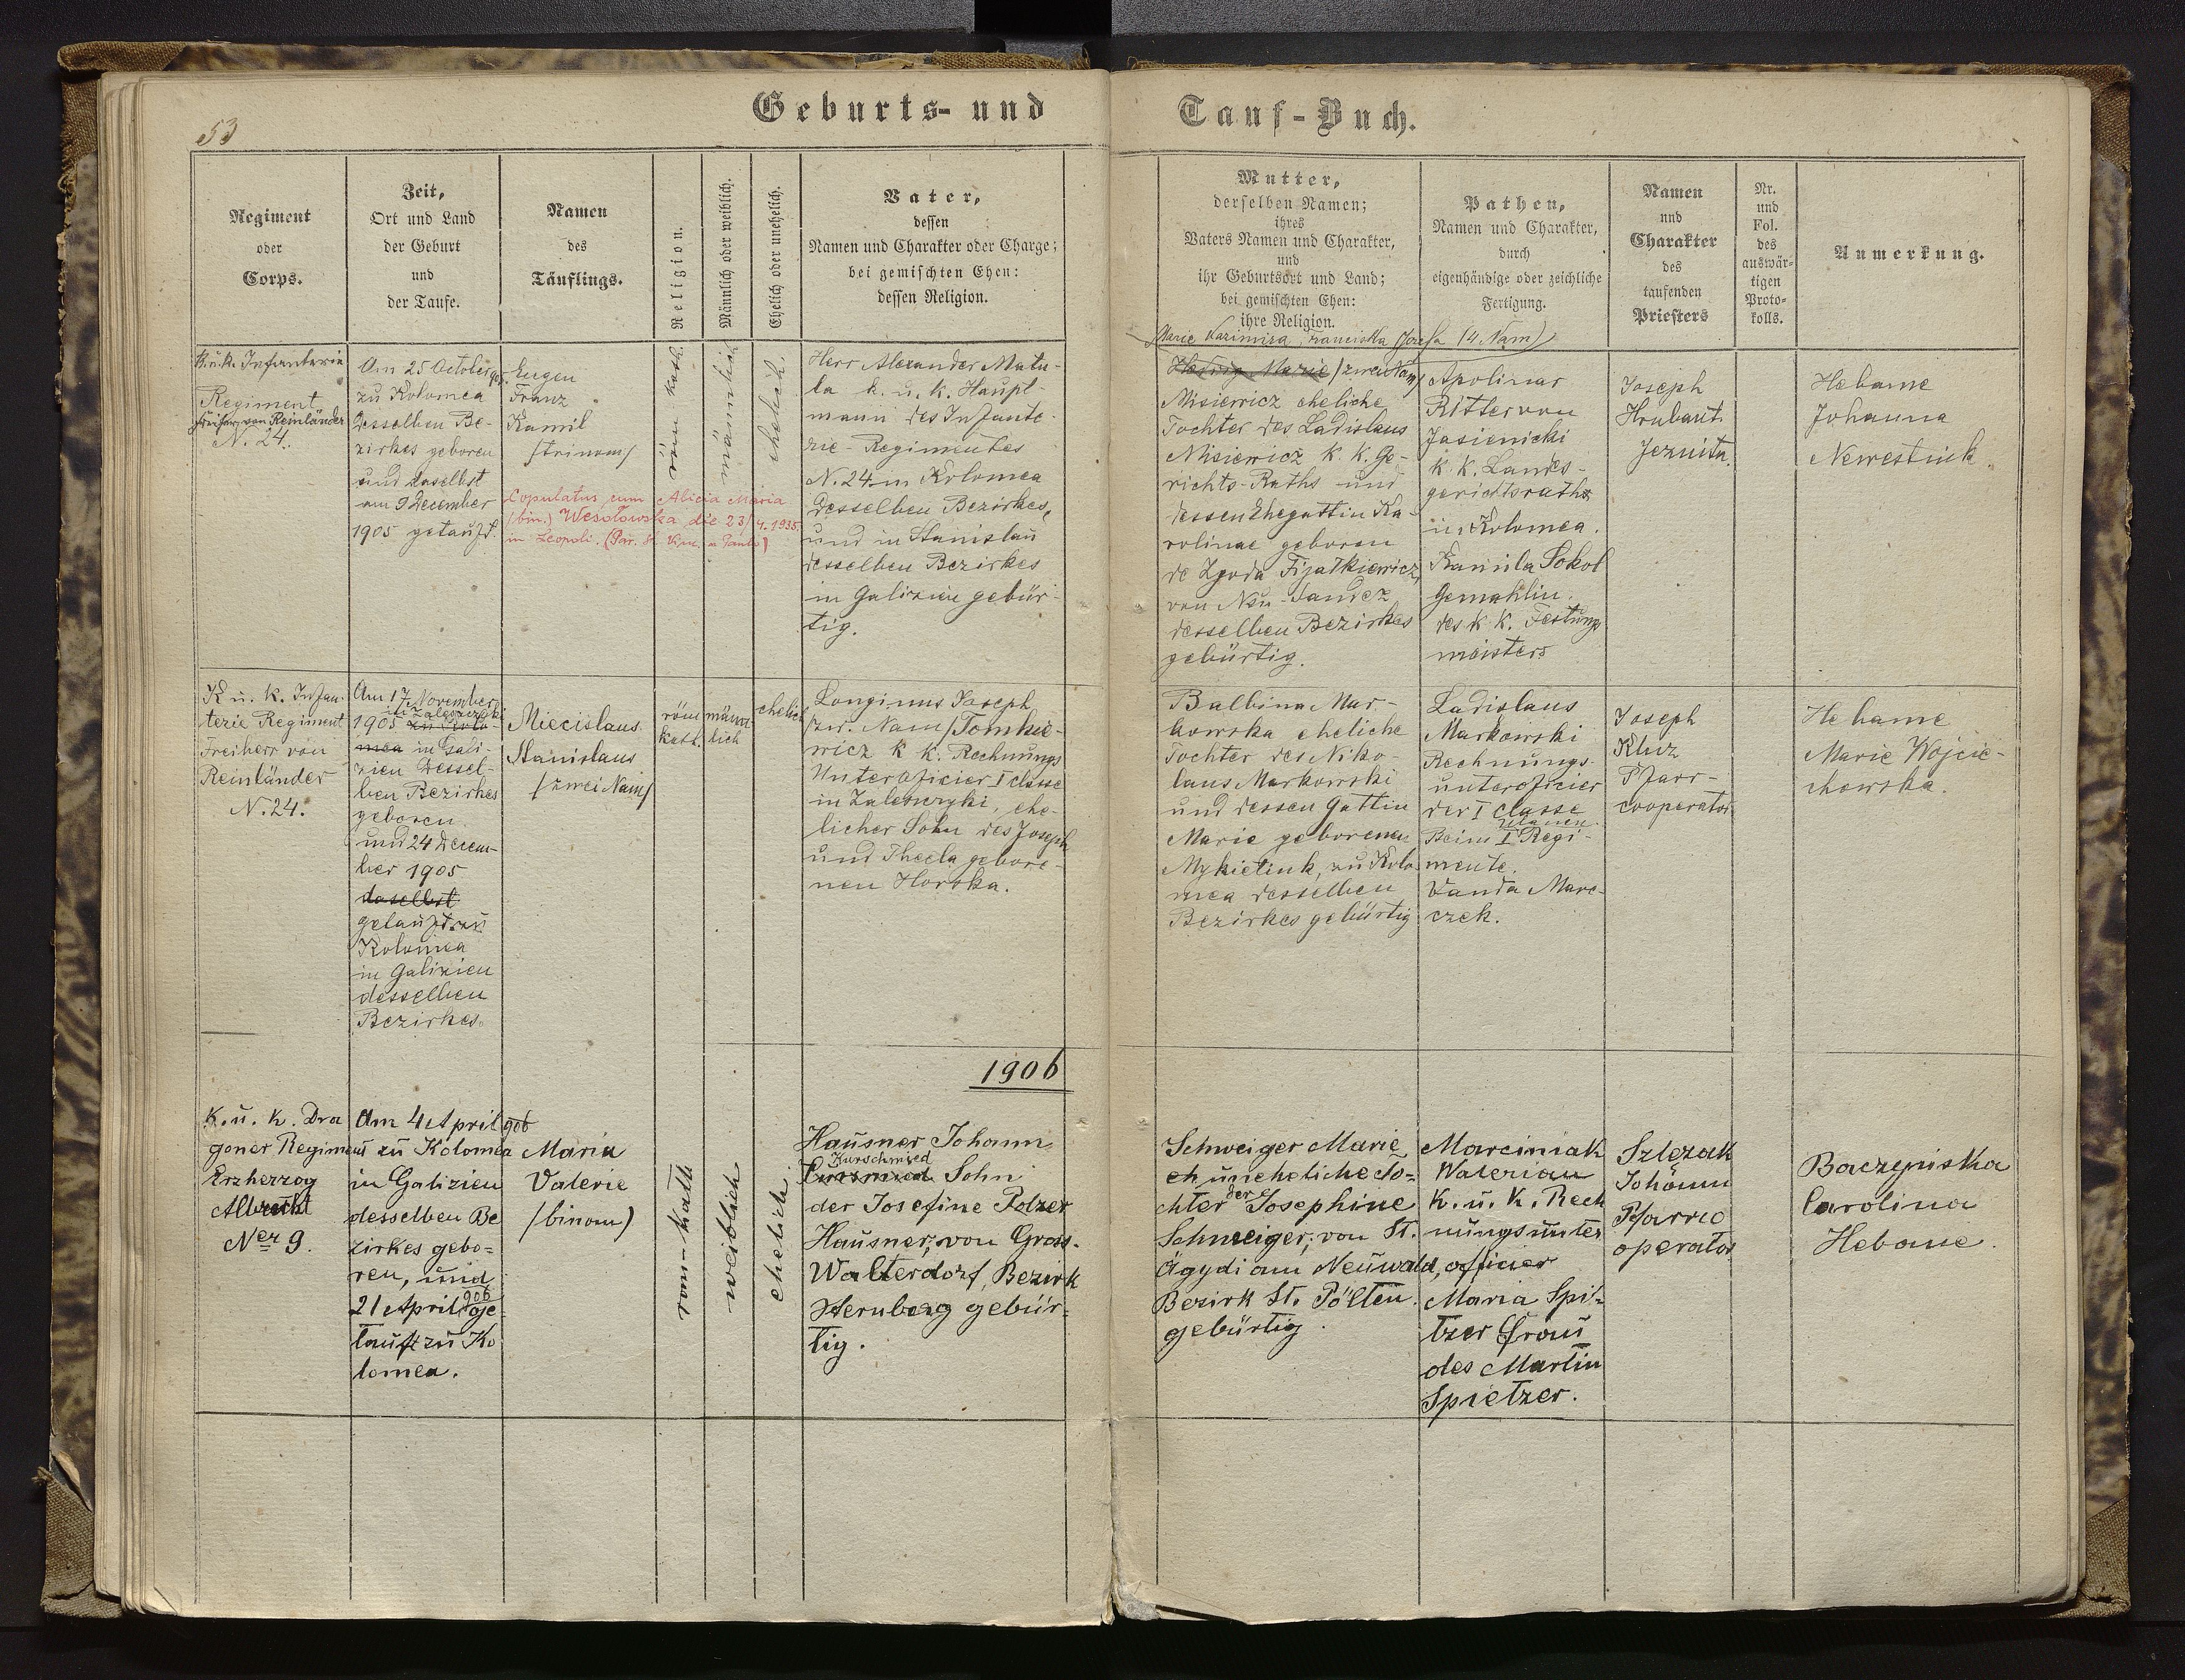 Geburts- und
Tauf-Buch.
53
Regiment
oder
Corps.
Zeit,
Ort und Land
der Geburt
und
der Taufe.
Namen
des
Täuflings.
Religion.
Männlich oder weiblich.
Ehelich oder unehelich.
Vater,
dessen
Namen und Charakter oder Charge;
bei gemischten Ehen:
dessen Religion.
Mutter,
derselben Namen;
ihres
Vaters Namen und Charakter,
und
ihr Geburtsort und Land;
bei gemischten Ehen:
ihre Religion.
Pathen,
Namen und Charakter,
durch
eigenhändige oder zeichliche
Fertigung.
Namen
und
Charakter
des
taufenden
Priesters
Nr.
und
Fol.
des
auswär-
tigen
Proto-
kolls.
Anmerkung.
K. u. k. Infanterie
Regiment
Freiherr von Reinländer
N. 24.
Am 25 October
zu Kolomea
desselben Be-
zirkes geboren
und daselbst
am 9 December
1905 getauft.
Eugen
Franz
Kamil
/trinom/
Copulatus cum Alicia Maria
/bin.) Wesołowska die 23/4. 1935
in Leopoli.
röm. kath.
männlich
ehelich.
Herr Alexander Matu-
la k. u. k. Haupt-
mann des Infante-
rie-Regimentes
N. 24 in Kolomea
desselben Bezirkes,
und in Stanislau
desselben Bezirkes
in Galizien gebür-
tig.
Marie Kazimira Franciska Josefa (4. Nam)
Hedwig Marie /zwei Nam/
Misiewicz eheliche
Tochter des Ladislaus
Misiewicz k. k. Ge-
richts-Raths und
dessen Ehegattin Ka-
rolinae geboren
de Zgoda Fijałkiewicz,
von Neu-Sandez
desselben Bezirkes
gebürtig.
Apolinar
Ritter von
Jasienicki
k. k. Landes-
gerichtsraths
in Kolomea.
Kamila Sokol
Gemahlin
des k. k. Festungs
meisters
Joseph
Hrubant
Jezuita.
Hebame
Johanna
Newestiuk.
K. u. k. Infan-
terie Regiment
Freiherr von
Reinländer
N. 24.
Am 17 November
in Zaleszczyki
1905 zu Kolo-
mea in Gali-
zien dessel-
ben Bezirkes
geboren
und 24 Decem-
ber 1905
daselbst
getauft zu
Kolomea
in Galizien
desselben
Bezirkes.
Miecislaus
Stanislaus
/zwei Nam/
röm
kath.
männ
lich
ehelich
Longinus Joseph
/zw. Nam/ Tomkie-
wicz k. k. Rechnungs
Unteroficier I classe
in Zaleszczyki, ehe-
licher Sohn des Joseph
und Thecla gebore-
nen Horska.
Balbina Mar-
kowska eheliche
Tochter des Niko-
laus Markowski
und dessen Gattin
Marie geborenen
Mykietiuk, zu Kolo-
mea desselben
Bezirkes gebürtig
Ladislaus
Markowski
Rechnungs-
unteroficier
der I classe
Ulanen
Beim I Regi-
mente.
Wanda Mare-
czek.
Joseph
Kluz
Pfarr-
cooperator
Hebame
Marie Wojcie-
chowska.
1906
K. u. k. Dra
goner Regiment
Erzherzog
Albrecht
Ner 9.
Am 4 April 906
zu Kolomea
in Galizien
desselben Be
zirkes gebo=
ren, und
21 April 906 ge-
tauft zu Ko
lomea.
Maria
Valerie
/binom)
rom-kath
weiblich
ehelich
Hausner Johann
Kurschmied
Sohn
der Josefine Polzer
Hausner, von Gross-
Walterdorf, Bezirk
Sternberg gebür-
tig.
Schweiger Marie
eh uneheliche To=
chter der Josephine
Schweiger, von St.
Ägydi am Neuwald,
Bezirk St. Pölten
gebürtig.
Marciniak
Walerian
K. u. k. Rech
nungsunter
officier
Maria Spi=
tzer Frau
des Martin
Spietzer.
Szlezak
Johann
Pfarrco
operator
Baczyniska
Carolina
Hebame.